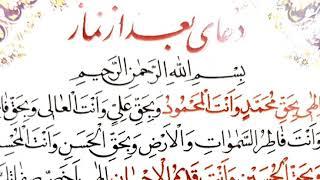 دعای بعد از نماز
بِسْمِ اللهِ الرَّحْمٰنِ الرَّحِيمِ
بِحَقِّ مُحَمَّدٍ وَاَنْتَ الْمَحْمُودُ وَبِحَقِّ عَلِيٍّ وَاَنْتَ الْعَالِی وَبِحَقِّ
وَاَنْتَ فَاطِرُ السَّمٰوَاتِ وَالْاَرْضِ وَبِحَقِّ الْحَسَنِ وَاَنْتَ
وَبِحَقِّ الْحُسَيْنِ وَاَنْتَ قَدِيمُ الْاِحْسَانِ